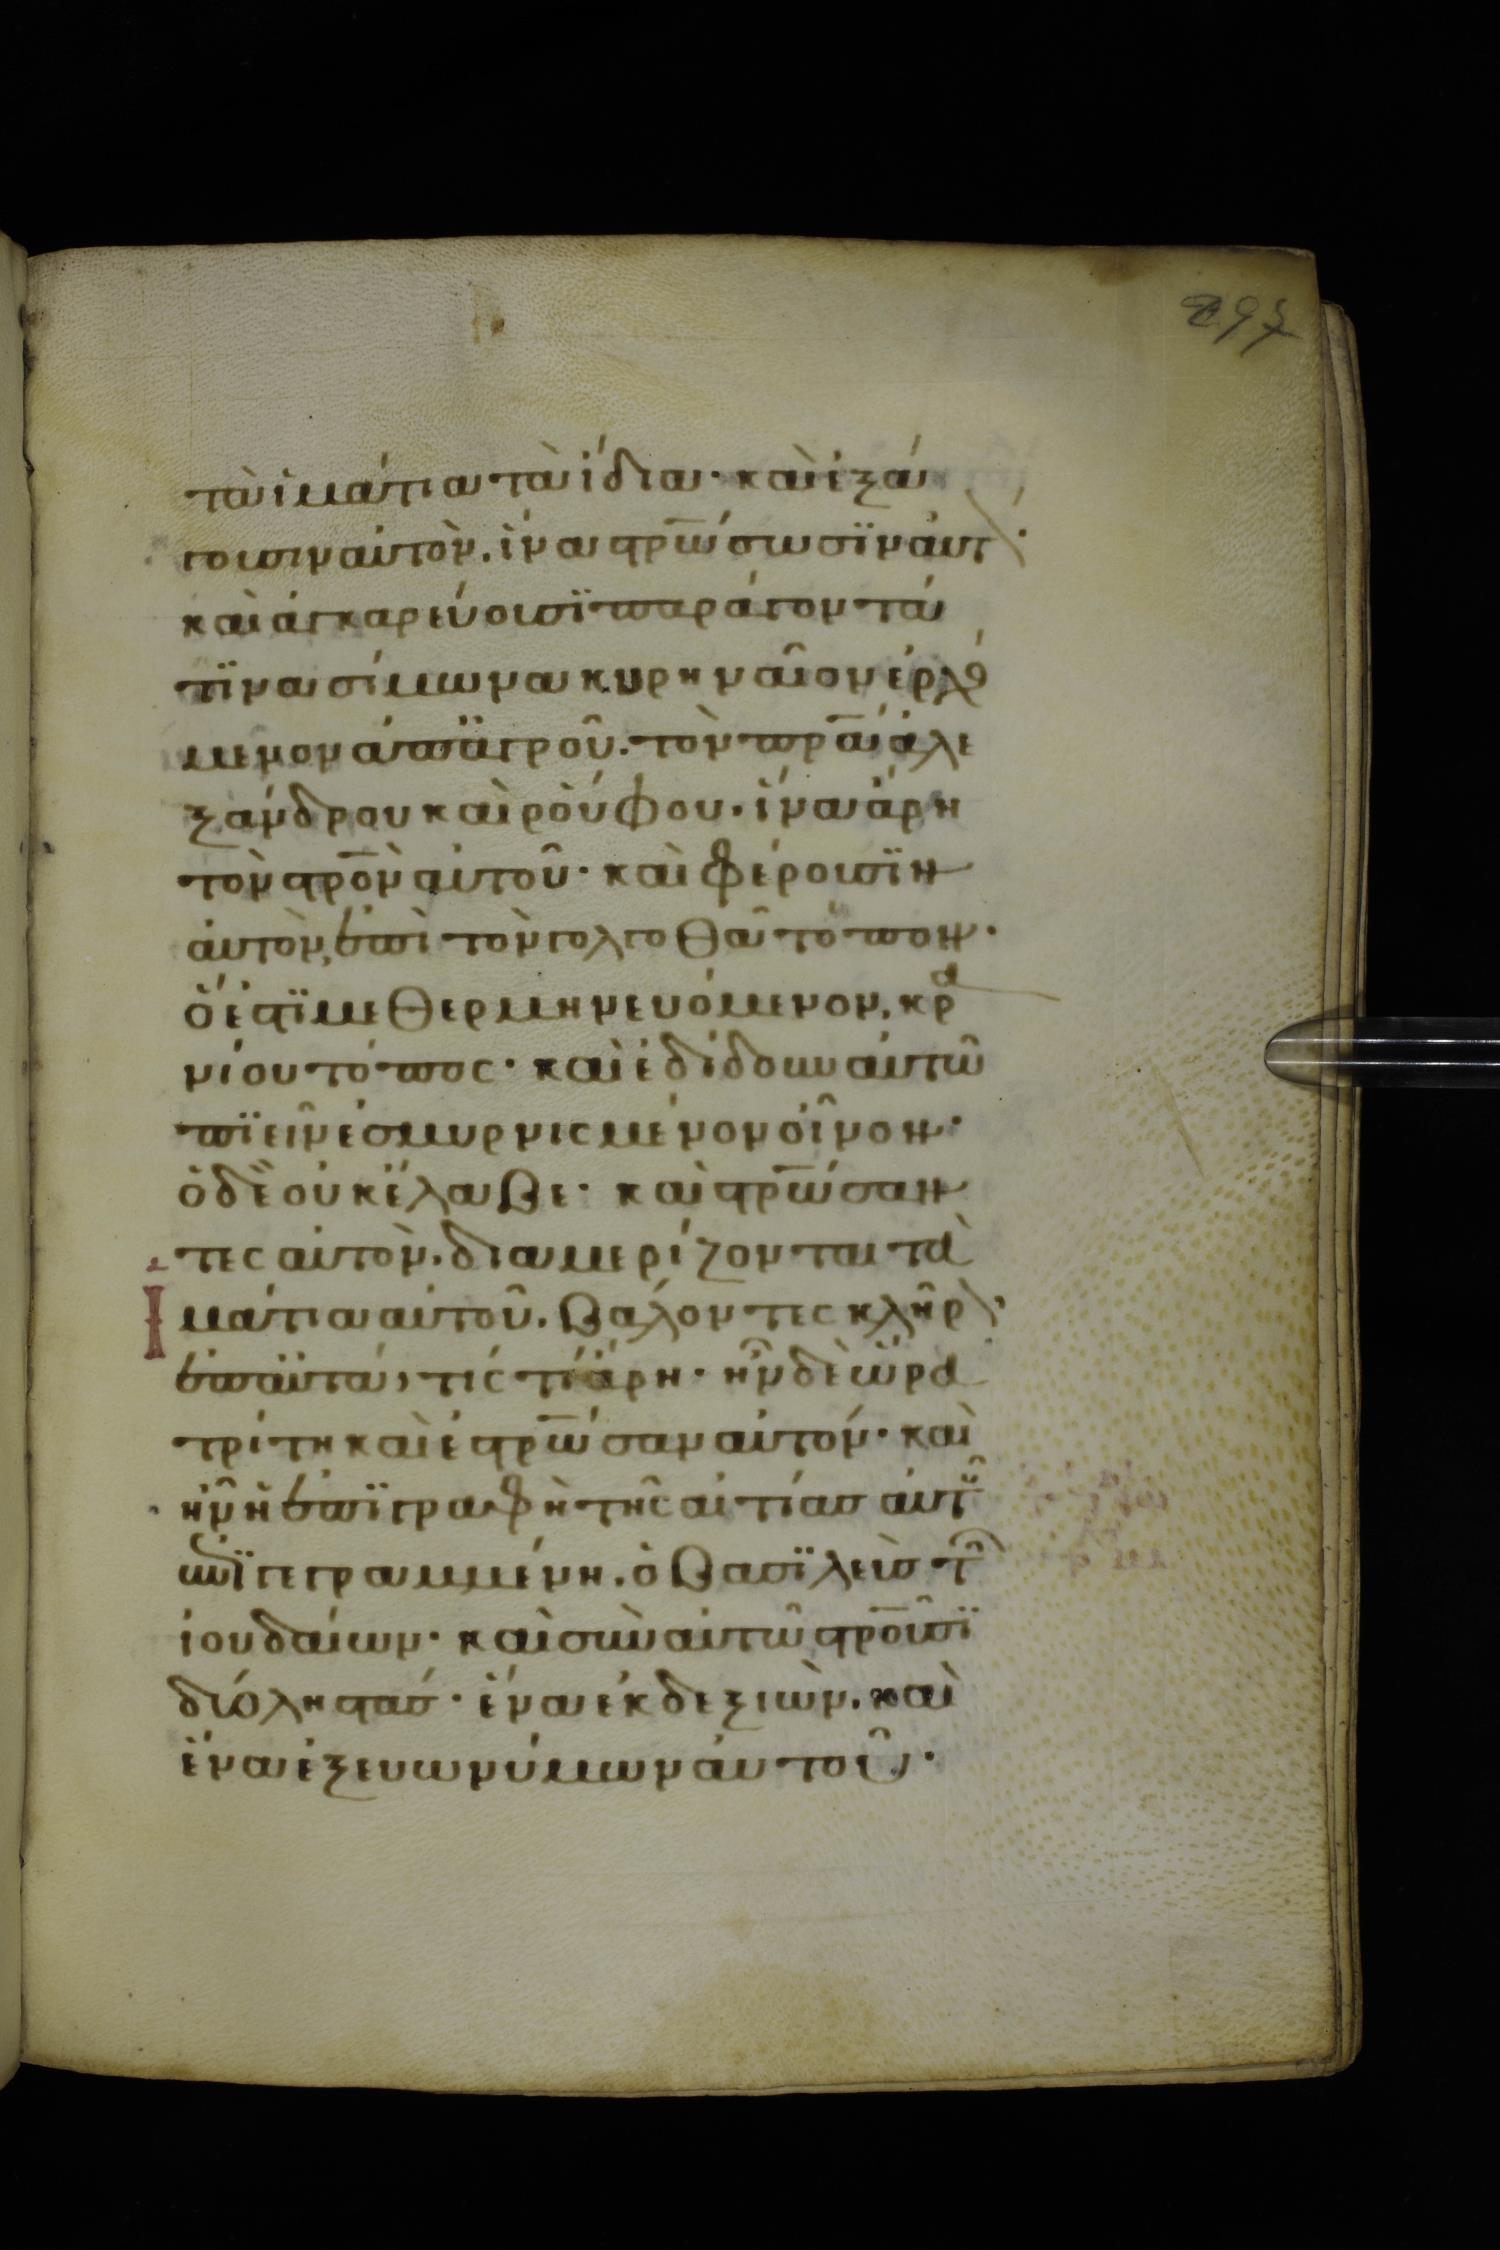 297
τὰ ἱμάτια τὰ ἴδια· καὶ ἐξά
γουσιν αὐτὸν. ἵνα στ̅ρ̅ώσωσϊν ἀυτ\·
καὶ ἀγκαρεύουσϊ παράγοντά
τϊνα σίμωνα κυρηναῖον ἐρχό
μενον ἀπ ἀγροῦ. τὸν π̅ρ̅α̅ ἀλε
ξάνδρου καὶ ρὸύφου. ἵνα ἄρη
τὸν στ̅ρ̅ο̅ν̅ ἀυτοῦ· καὶ φέρουσϊν
ἀυτὸν, ἐπὶ τὸν γολγοθᾶ τόπον·
ὅ ἐστϊ μεθερμηνευόμενον, κρα
νίου τόπος· καὶ ἐδίδουν ἀυτῶ
πϊεῖν ἐσμυρνισμένον οἶνον·
ὁ δὲ οὐκ ἔλαβε· καὶ στ̅ρ̅ώσαν
τες αὐτὸν. διαμερίζονται τὰ
ἱμάτια αὐτοῦ. βαλόντες κλῆρ\
ἐπ ἀυτά, τίς τί ἄρη· ἦν δὲ ὥρα
τρίτη καὶ ἐστ̅ρ̅ώσαν αὐτόν· καὶ
ἦν ἡ ἐπϊγραφὴ τῆς αἰτίας ἀυτοῦ
ἐπϊγεγραμμένη. ὁ βασϊλεὺς τῶν
ἰουδαίων· καὶ σὺν αὐτῶ στ̅ρ̅οῦσϊ
δύο ληστάς· ἕνα ἐκ δεξιὼν. καὶ
ἕνα ἐξ ευωνύμων ἀυτοῦ·